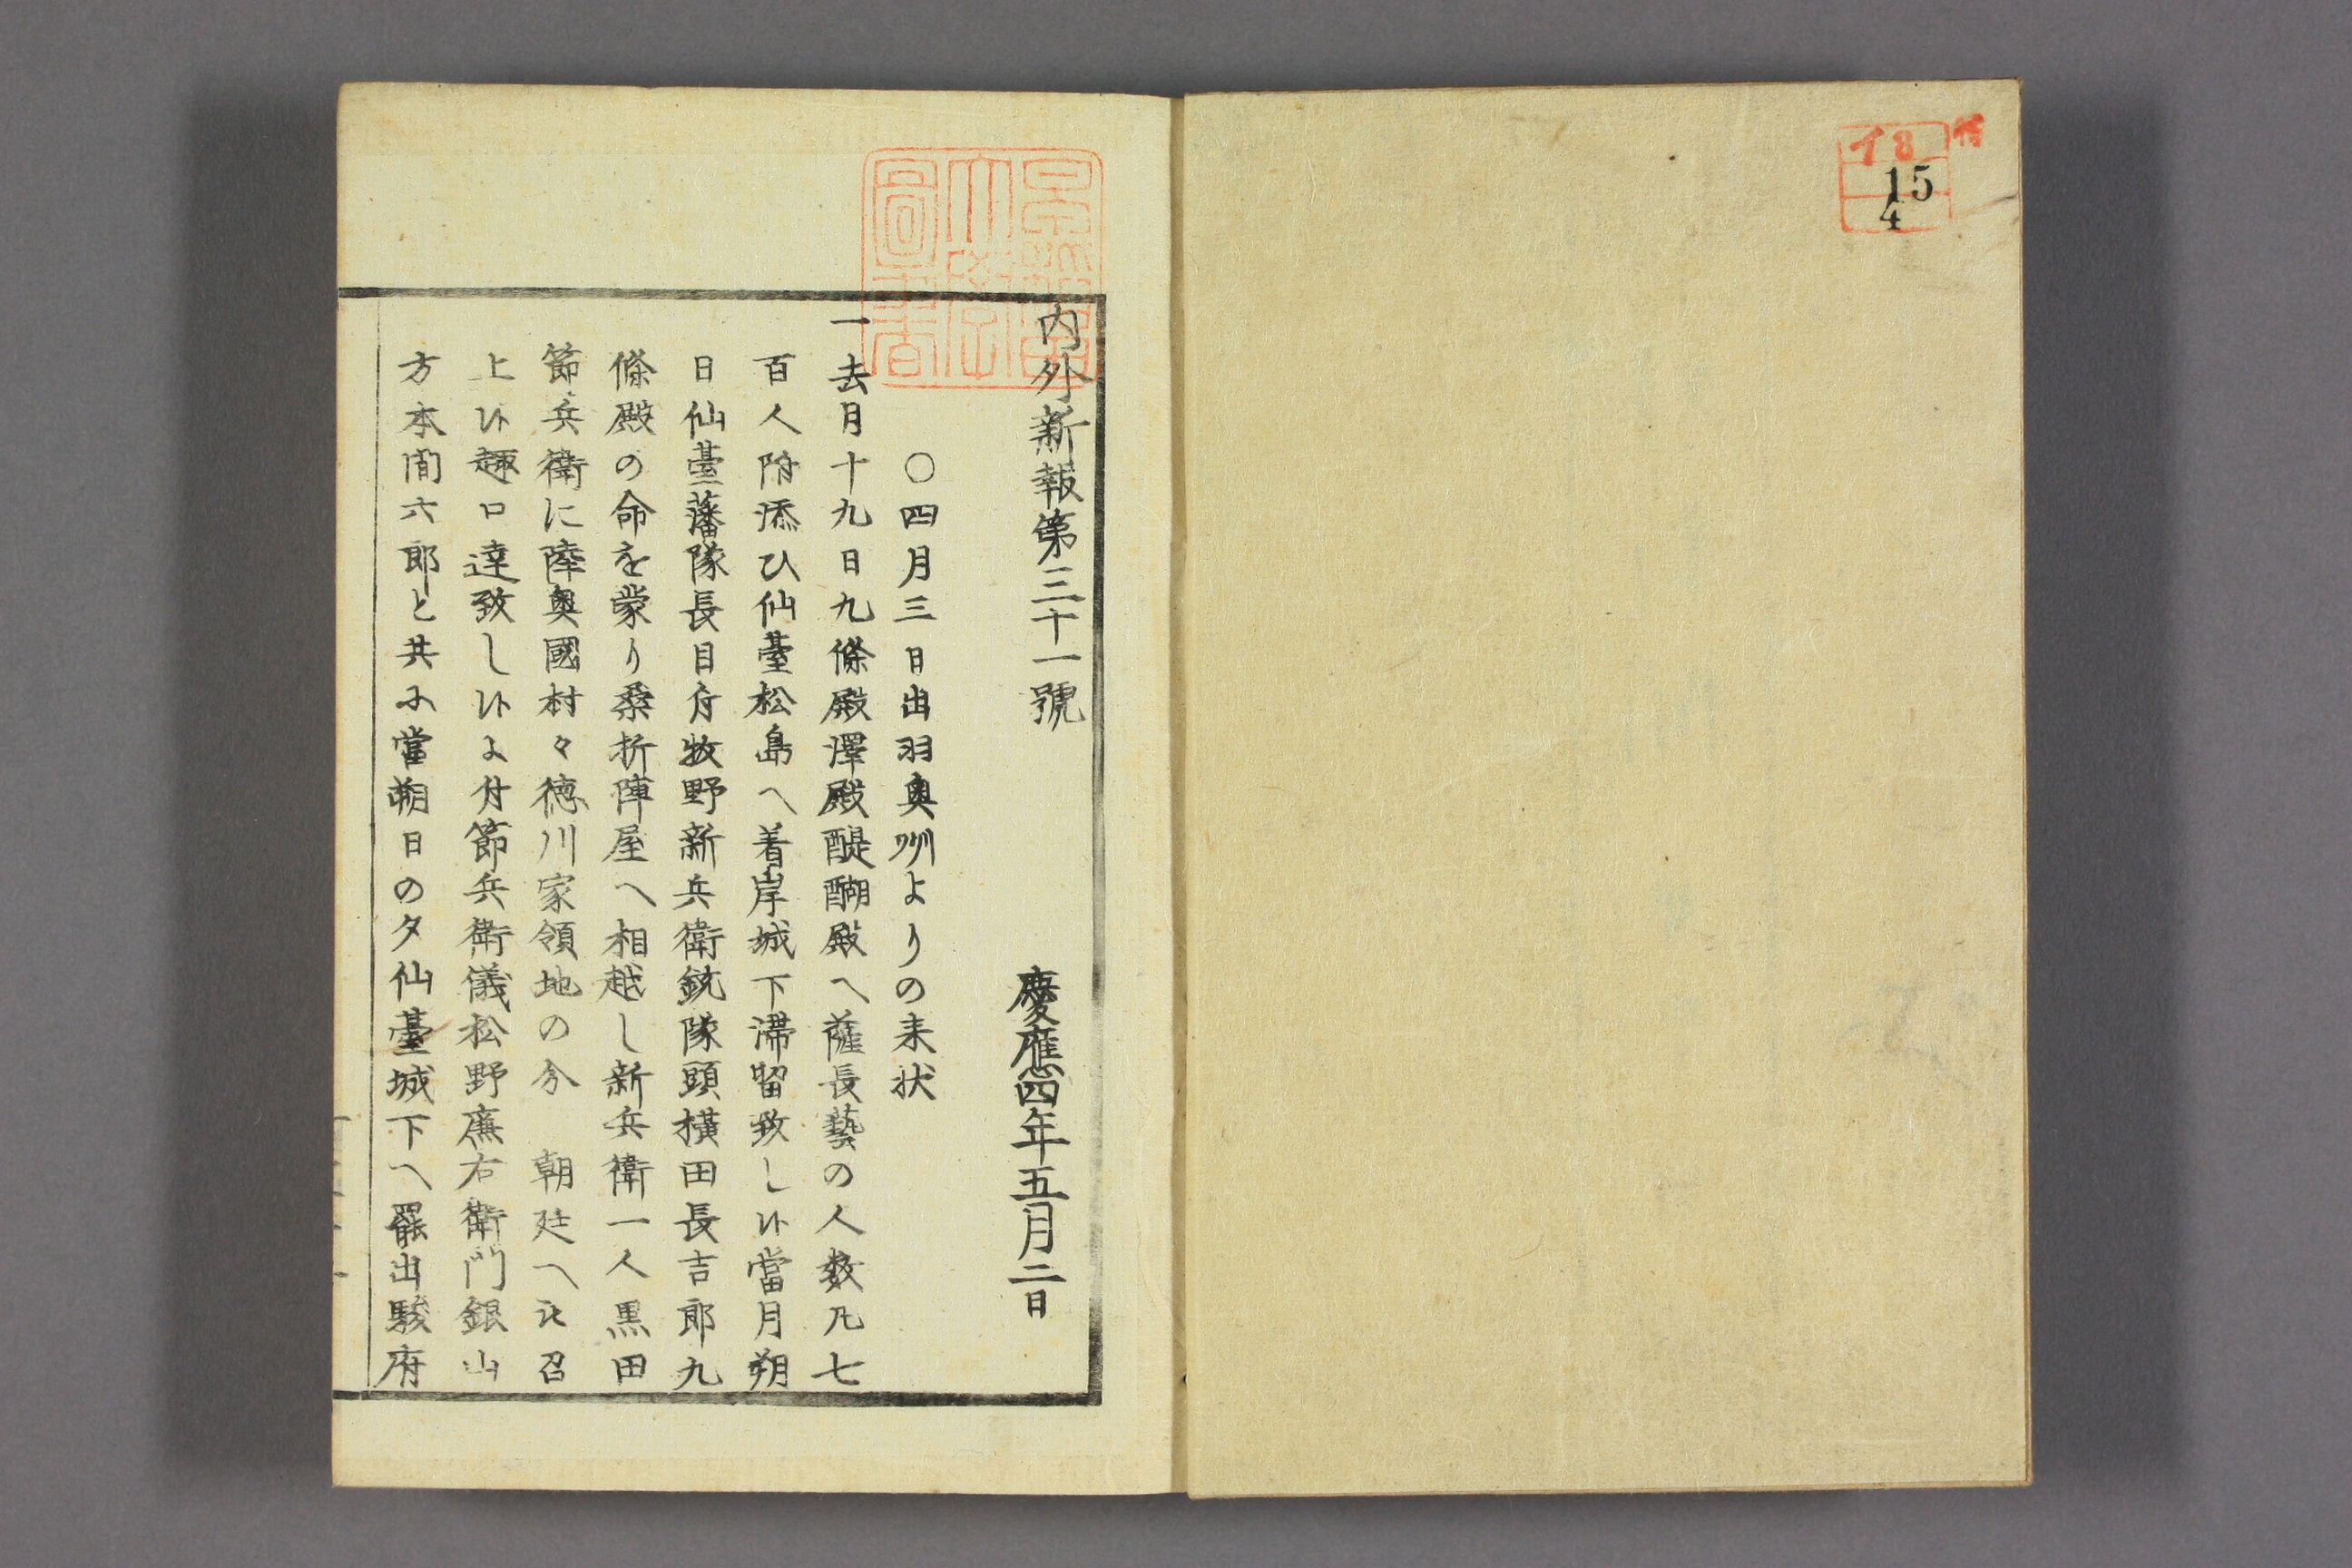 特
イ8
15
4
内外新報第三十一號
慶應四年五月二日
○四月三日出羽奥州よりの来状
一去月十九日九條殿澤殿醍醐殿へ薩長藝の人数凡七
百人附添ひ仙臺松島へ着岸城下滞留致し候當月朔
日仙臺藩隊長目付牧野新兵衛銃隊頭横田長吉郎九
條殿の命を蒙り桑折陣屋へ相越し新兵衛一人黒田
節兵衛に陸奥國村々徳川家領地の分 朝廷へ被召
上候趣口達致し候よ付節兵衛儀松野廉右衛門銀山
方本間六郎と共に當朔日の夕仙臺城下へ罷出駿府